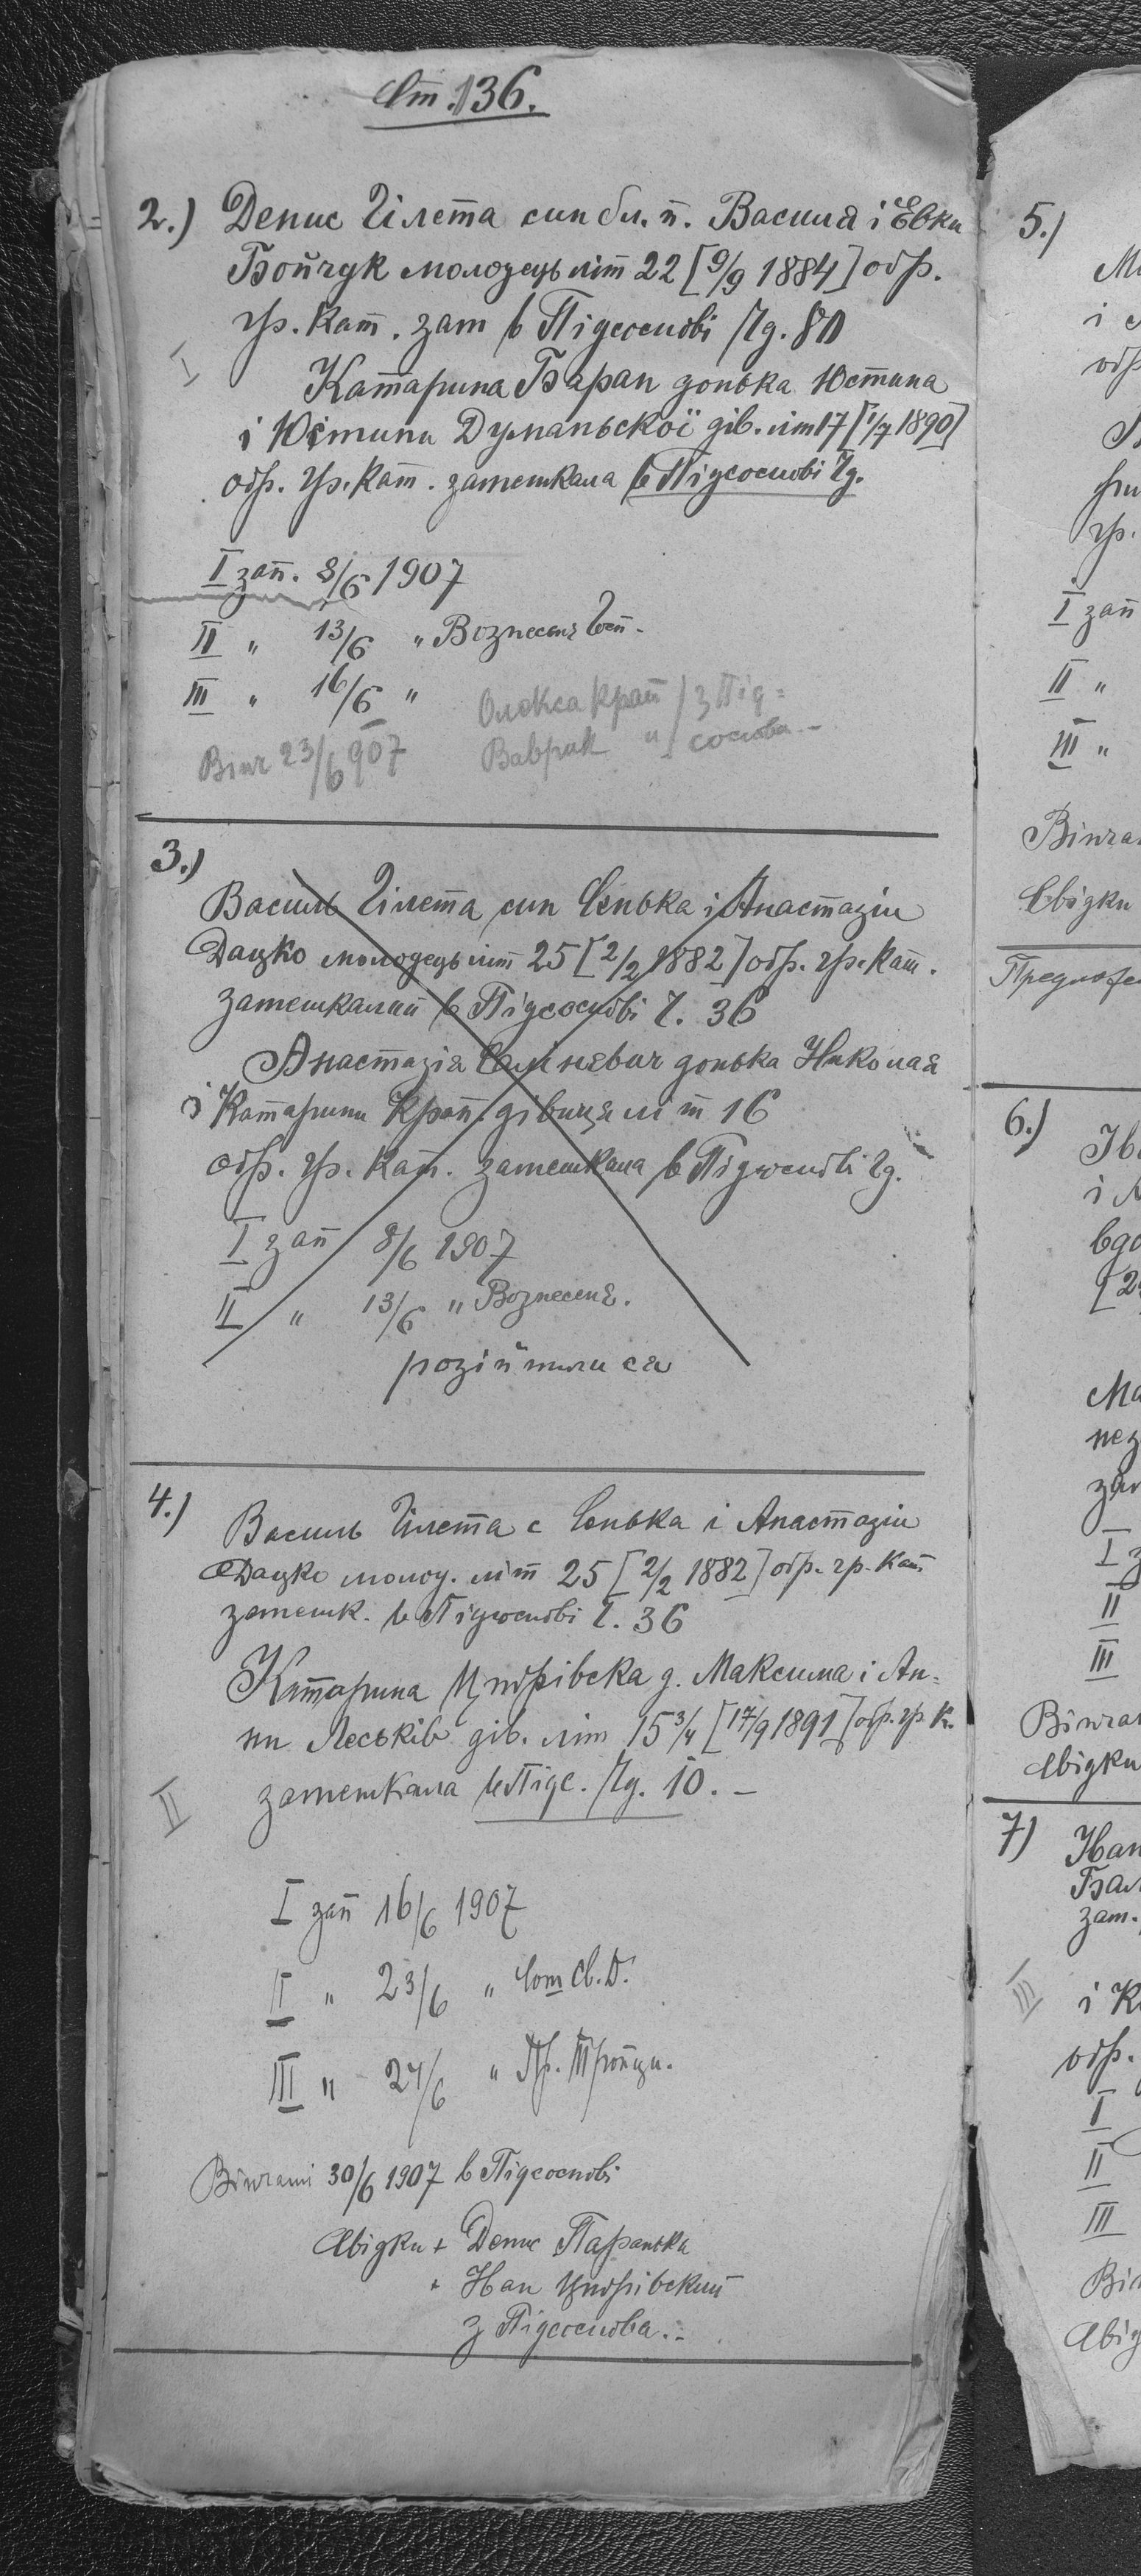 Ст. 136.
2.) Денис Гілета син бл. п. Василя і Евки
Бойчук молодець літ 22 [9/9 1884] обр.
гр. кат. зам в Підсоснові /чд. 80
I
Катарина Баран донька Юстина
і Юстини Думаньскої дів. літ 17 [1/7 1890]
обр. гр. кат. замешкала в Підсоснові чд.
I зап. 8/6 1907
II " 13/6 " Вознесенє Госп.
III " 16/6 "
Олекса Крап / з Під=
Ваврик " / соснова. -
Вінч 23/6 907
3.)
Василь Гілета син Сенька і Анастазіи
Дацко молодець літ 25 [2/2 1882] обр. гр. кат.
замешкалий в Підсоснові ч. 36
Анастазія донька Николая
і Катарини Крап. дівиця літ 16
обр. гр. кат. замешкала в Підсоснові чд.
I зап 8/6 1907
II " 13/6 " Вознесенє.
розійшли ся
4.)
Василь Гілета с Сенька і Анастазіи
Дацко молод. літ 25 [2/2 1882] обр. гр. кат
замешк. в Підсоснові ч. 36
Катарина Цюрівска д. Максима і Ан-
ни Леськів дів. літ 15 3/4 [17/9 1891] обр. гр. к.
замешкала в Підс. /чд. 10. -
II
I зап 16/6 1907
II " 23/6 " Сош св. Д.
III " 24/6 " Пр. Тройци.
Вінчані 30/6 1907 в Підсоснові
Свідки + Денис Паранька
+ Иан Цюрівский
з Підсоснова. -
5.)
I зап
II "
III "
Вінчан
Свідки
6.)
I з
II
III
Вінчан
Свідки
7)
Иан
зам.
III
і К
обр.
I
II
III
Він
Свід